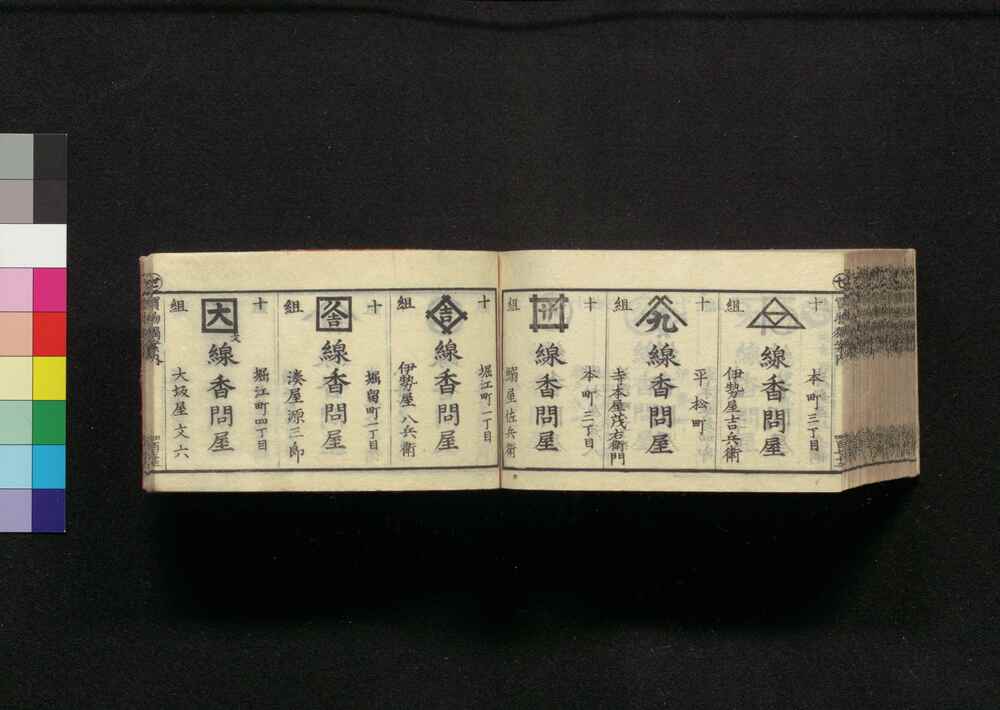 十組
線香問屋
本町三丁目
伊勢屋吉兵衛
十組
線香問屋
平松町
寺本屋茂右衛門
十組
線香問屋
本町三丁目
屋佐兵衛
十組
吉
線香問屋
堀江町一丁目
伊勢屋八兵衛
十組
線香問屋
堀留町一丁目
湊屋源三郎
十組
大
線香問屋
堀江町四丁目
大坂屋文六